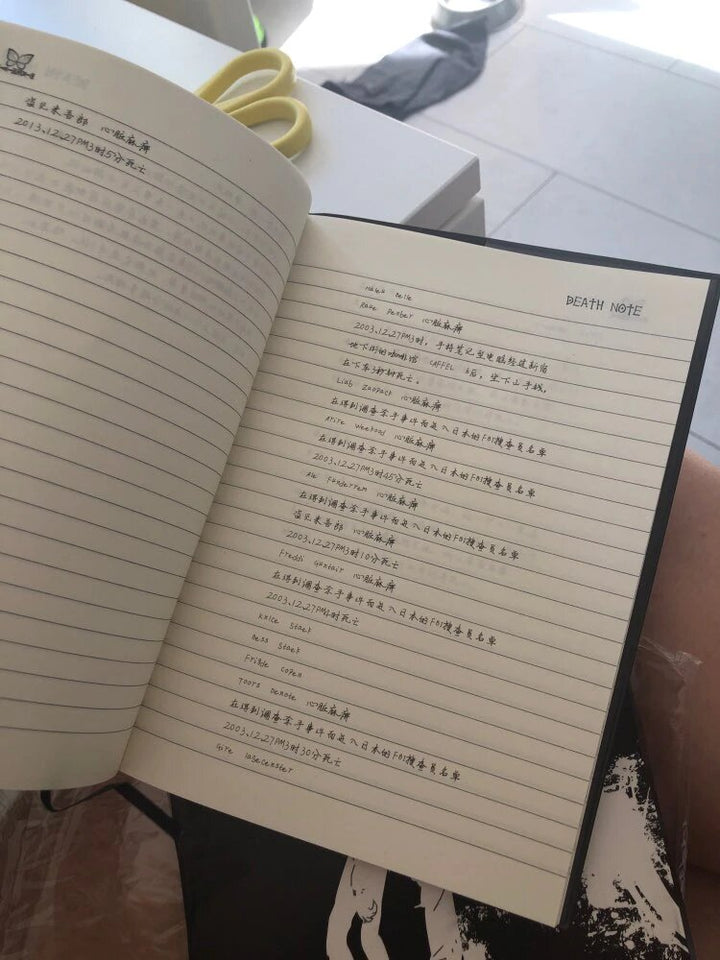 温见来吾郎 心脏麻痹
2013.12.27PM3时5分死亡
DEATH NOTE
Halek Belle
Raye Penber 心脏麻痹
2003.12.27PM3时,手持笔记型电脑经过新宿
地下街的咖啡馆 CAFFEL b后,坐下山手线,
在下车3秒钟死亡。
Lian Zaopack 心脏麻痹
在得到调查杀手事件而是入日本的FBI搜查员名单
Arire Weekwood 心脏麻痹
在得到调查杀手事件而是入日本的FBI搜查员名单
2003.12.27PM3时45分死亡
Ale Funderrem 心脏麻痹
在得到调查杀手事件而是入日本的FBI搜查员名单
温见来吾郎 心脏麻痹
2003.12.27PM3时10分死亡
Freddi Guntair 心脏麻痹
在得到调查杀手事件而是入日本的FBI搜查员名单
2003.12.27PM4时死亡
Knice Staek
Bess Staek
Frigde Copen
Toors Denote 心脏麻痹
在得到调查杀手事件而是入日本的FBI搜查员名单
2003.12.27PM3时30分死亡
Gire Iagecenster